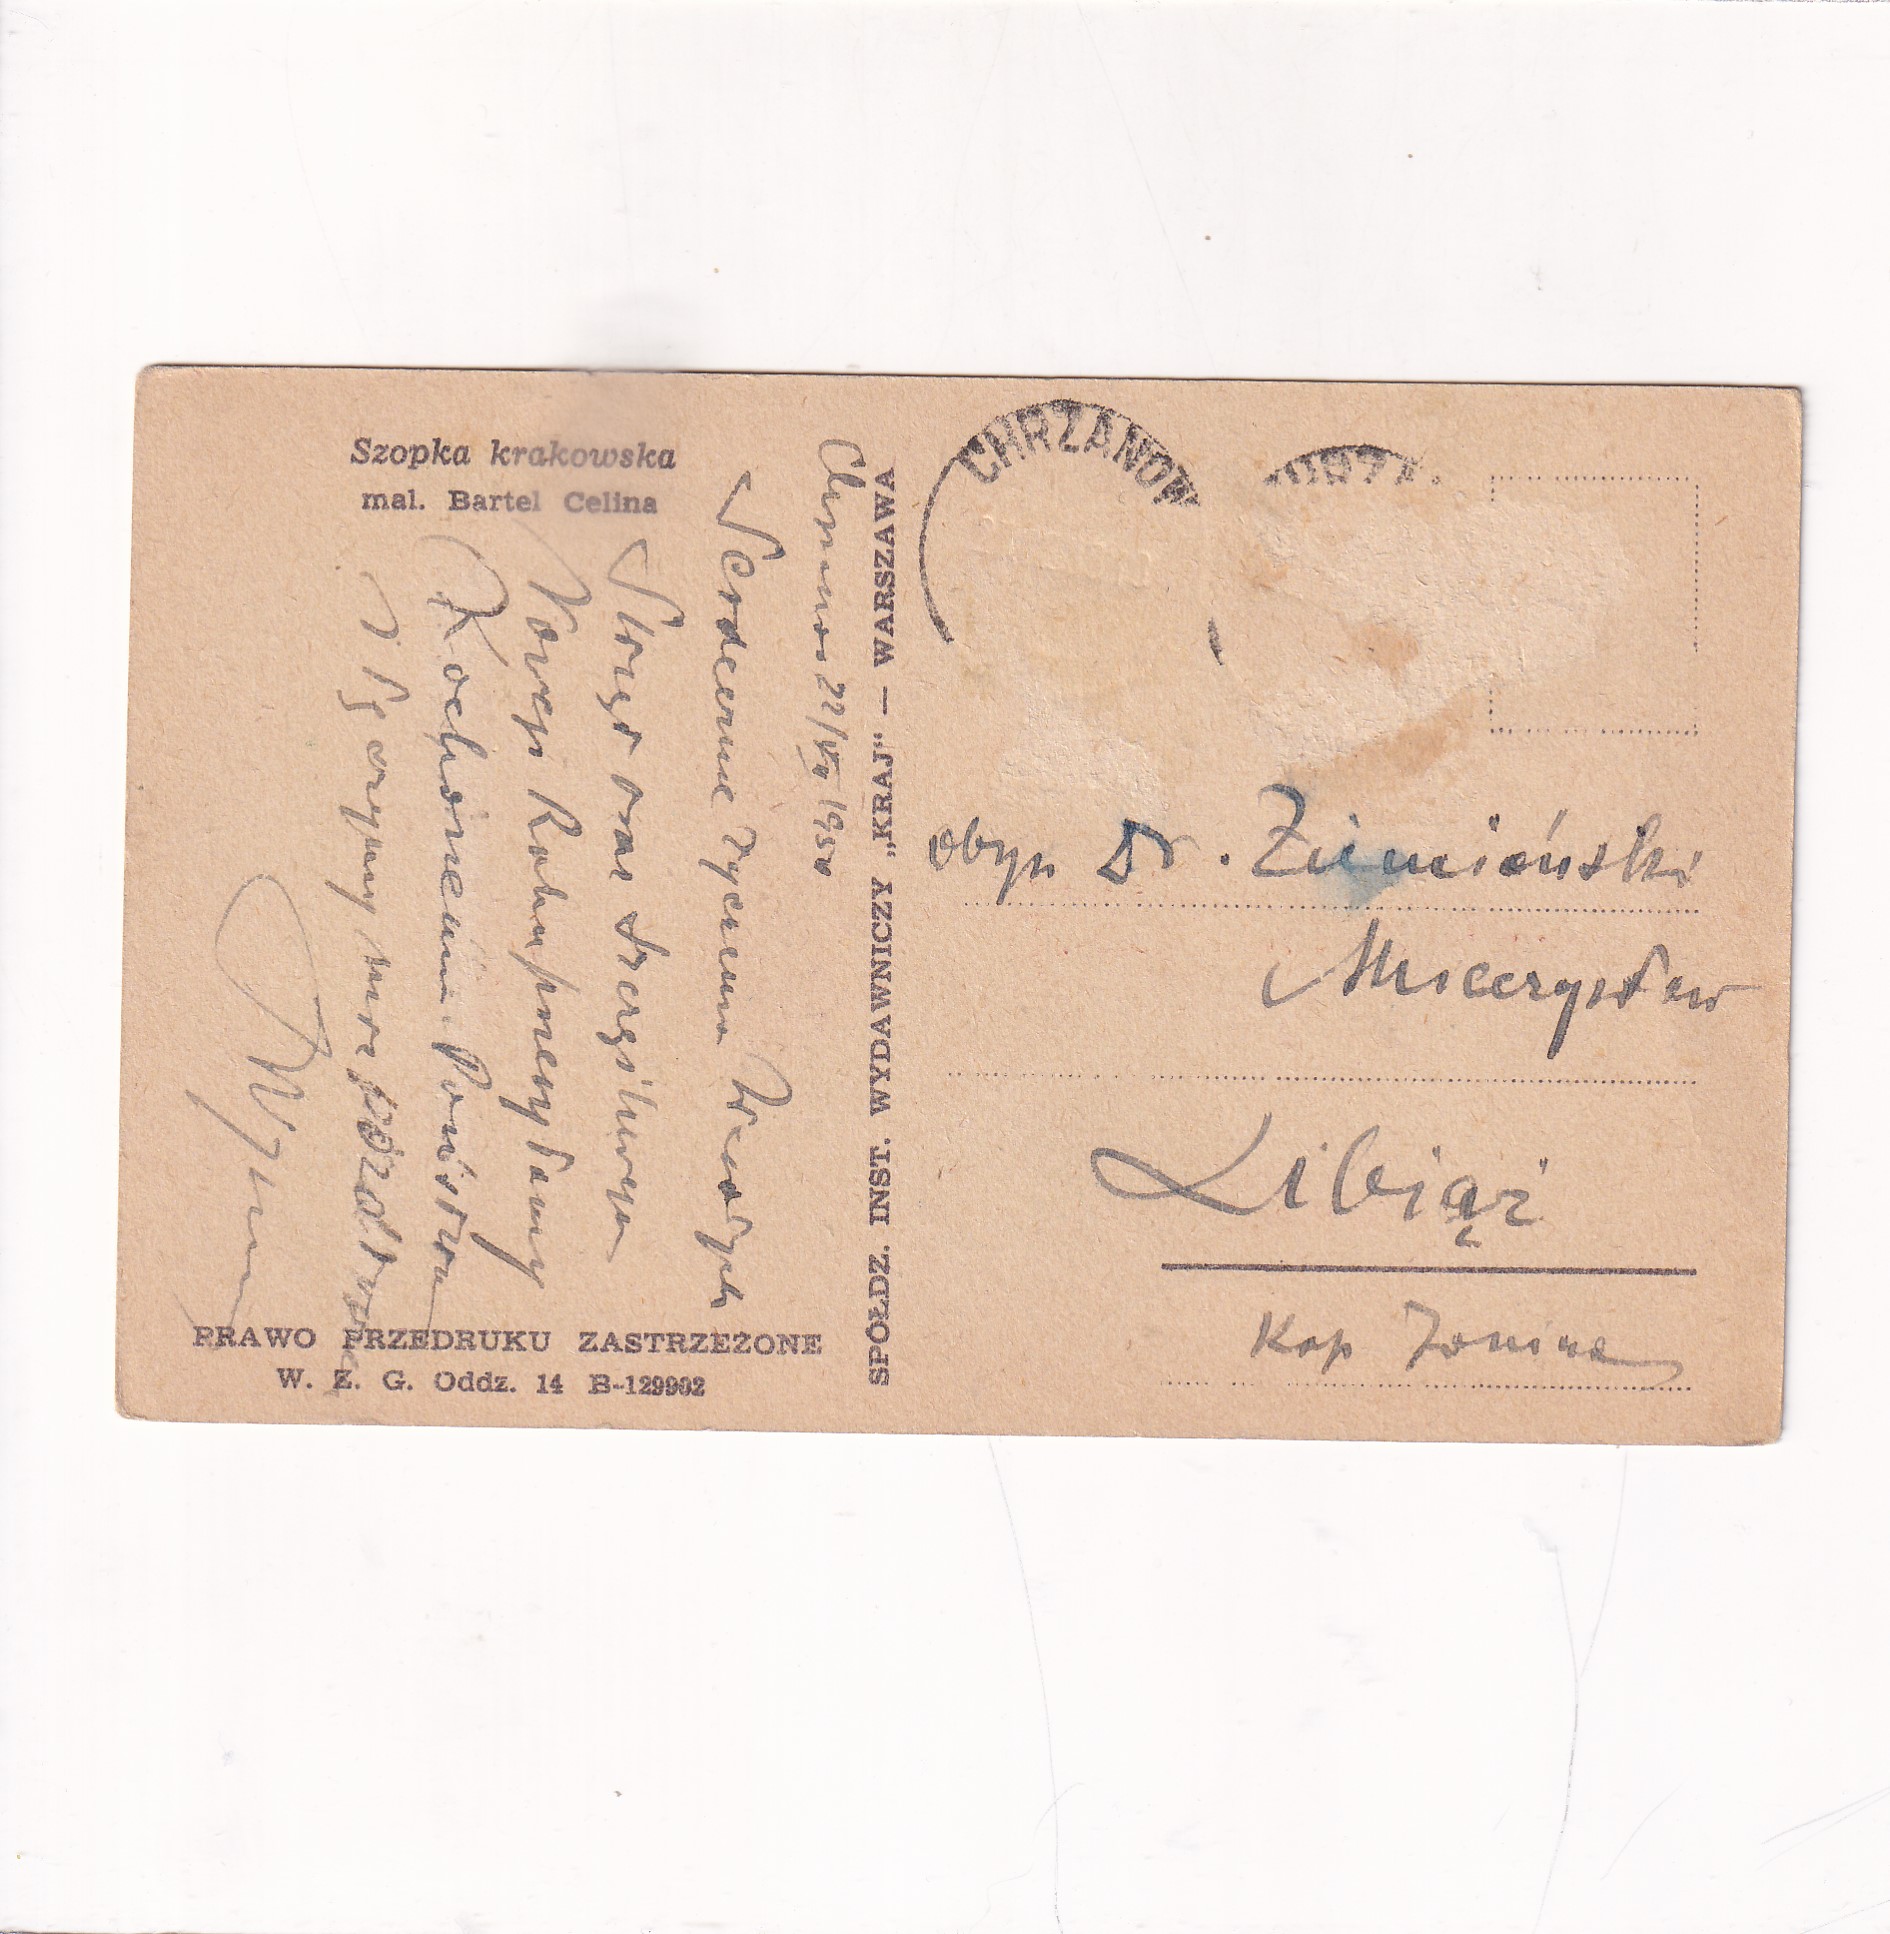 Szopka krakowska
mal. Bartel Celina
Chrzanów 22/XII 1950
Serdeczne życzenia Wesołych
Świąt oraz szczęśliwego
Nowego Roku przesyłamy
Kochanemu Państwu
PRAWO PRZEDRUKU ZASTRZEŻONE
W. Z. G. Oddz. 14 B-129902
SPÓŁDZ. INST. WYDAWNICZY „KRAJ" — WARSZAWA
CHRZANÓW
obyw Dr. Ziemiański
Mieczysław
Libiąż
Kop Janina